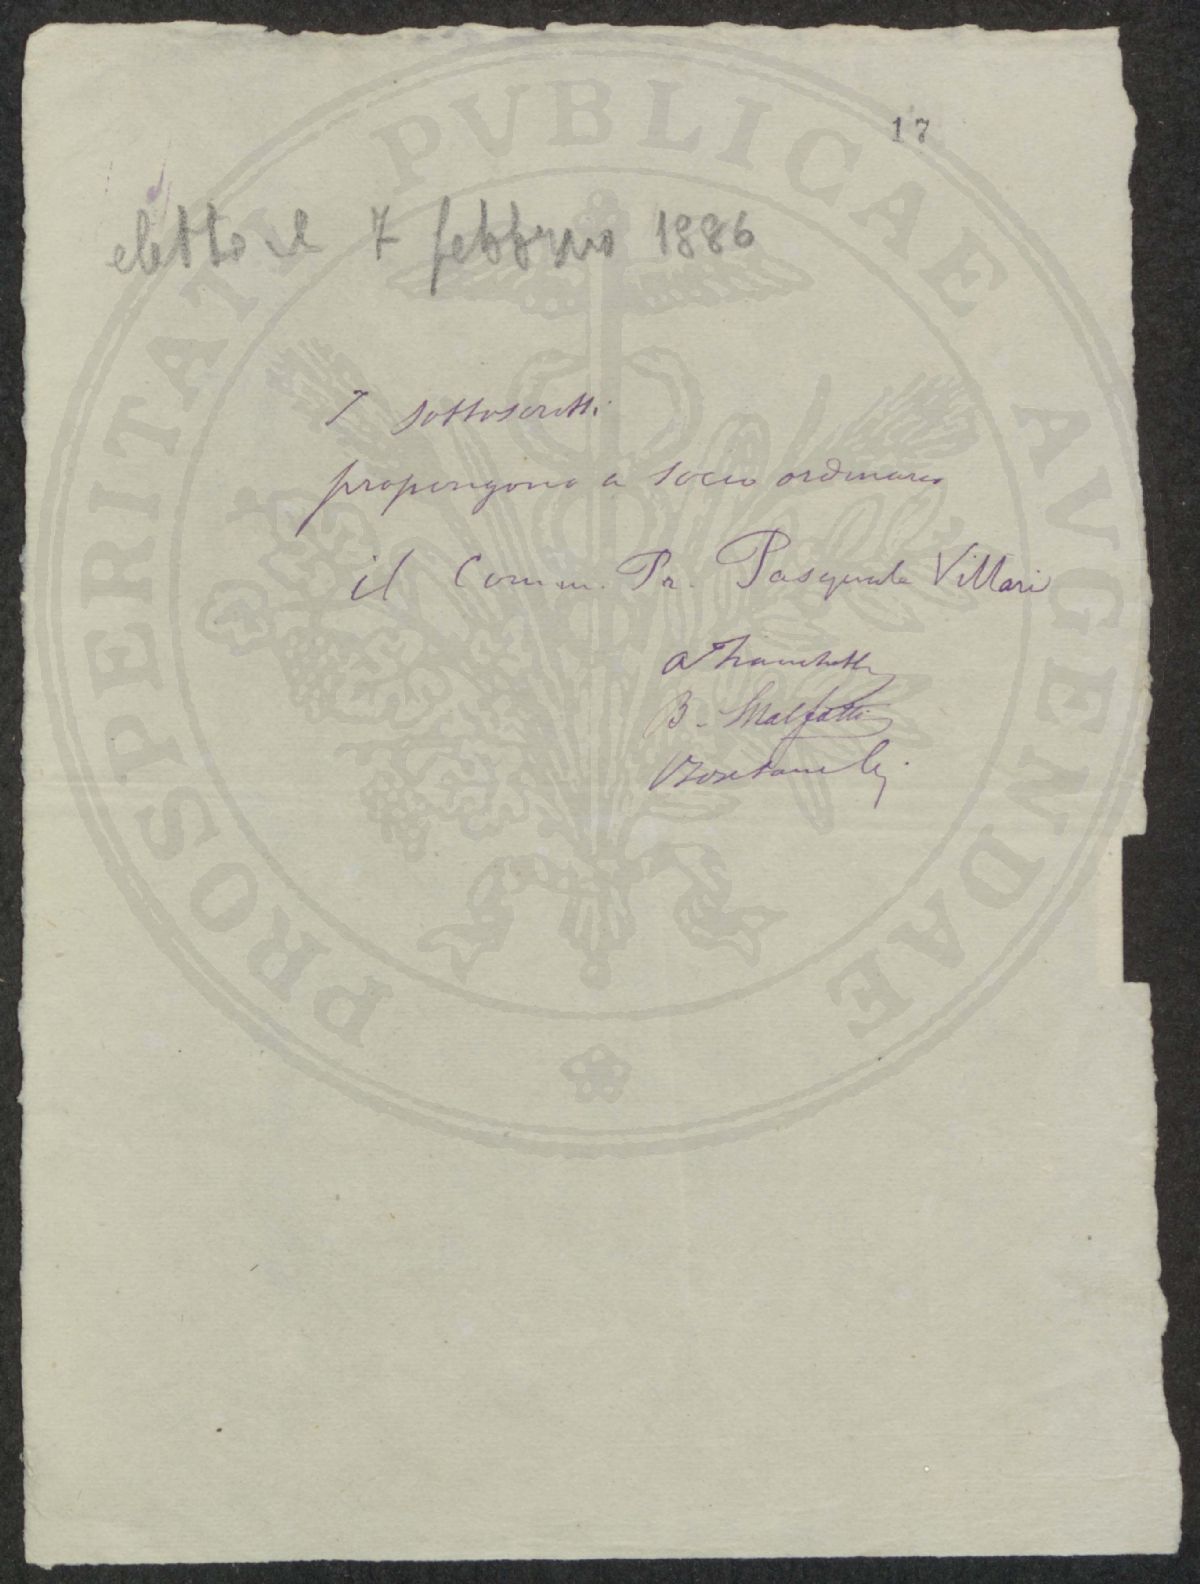 17
eletto il 7 febbraio 1886
I sottoscritti
propongono a socio ordinario
il Comm. Pr. Pasquale Villari
B. Malfatti
PROSPERITATI PVBLICAE AVGENDAE